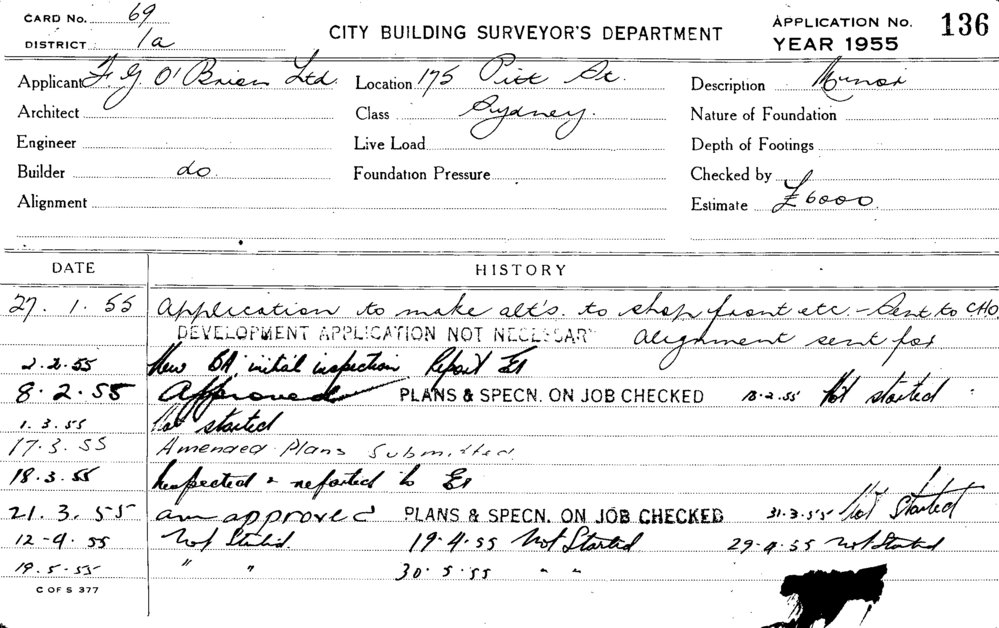 CARD No. 69
DISTRICT 1a
CITY BUILDING SURVEYOR'S DEPARTMENT
APPLICATION No. 136
YEAR 1955
Applicant F G O'Brien Ltd. Location 175 Pitt St. Description Minor
Architect Class Sydney. Nature of Foundation
Engineer Live Load Depth of Footings
Builder do Foundation Pressure Checked by
Alignment Estimate £6000
DATE HISTORY
27. 1. 55 Application to make alt's. to shop front etc. - Sent to CHO.
DEVELOPMENT APPLICATION NOT NECESSARY Alignment sent for
2.2.55 New BA, initial inspection Report
8.2.55 Approved PLANS & SPECN. ON JOB CHECKED 18.2.55 Not started
1.3.55 Not started
17.3.55 Amended Plans Submitted.
18.3.55 Inspected & reported to
21.3.55 am approved PLANS & SPECN. ON JOB CHECKED 31.3.55 Not Started
12-4.55 Not Started. 19.4.55 Not Started 29-4.55 Not Started
19.5.55 " " 30.5.55 " "
C OF S 377